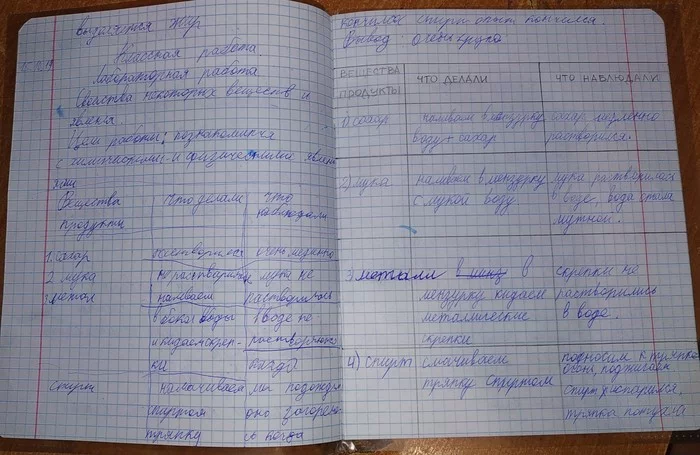 выделяется жир
Классная работа
Лабораторная работа
Свойства некоторых веществ и
явлена
Цель работы: познакомится
с химическими и физическими явлен
иями
Вещества Что делали Что
продукты наблюдали
1. сахар растворился очень медленно
2 мука не растворилась мука не
наливаем растворилась
в бокал воды в воде не
и кидаем скреп- растворились
ки когда
Спирт намачиваем мы подожгли
спиртом оно загорелось
тряпку и когда
кончился спирт опыт кончился.
Вывод: очень круто
ВЕЩЕСТВА ЧТО ДЕЛАЛИ ЧТО НАБЛЮДАЛИ
ПРОДУКТЫ
1) сахар наливаем в мензурку сахар медленно
воду + сахар растворился.
2) мука наливаем в мензурку мука растворилась
с мукой воду в воде, вода стала
мутной.
3 металл в менз в скрепки не
мензурку кидаем растворились
металлические в воде.
скрепки
4) Спирт смачиваем подносим к тряпке
тряпку спиртом огонь, поджигаем
спирт испарился,
тряпка потухла